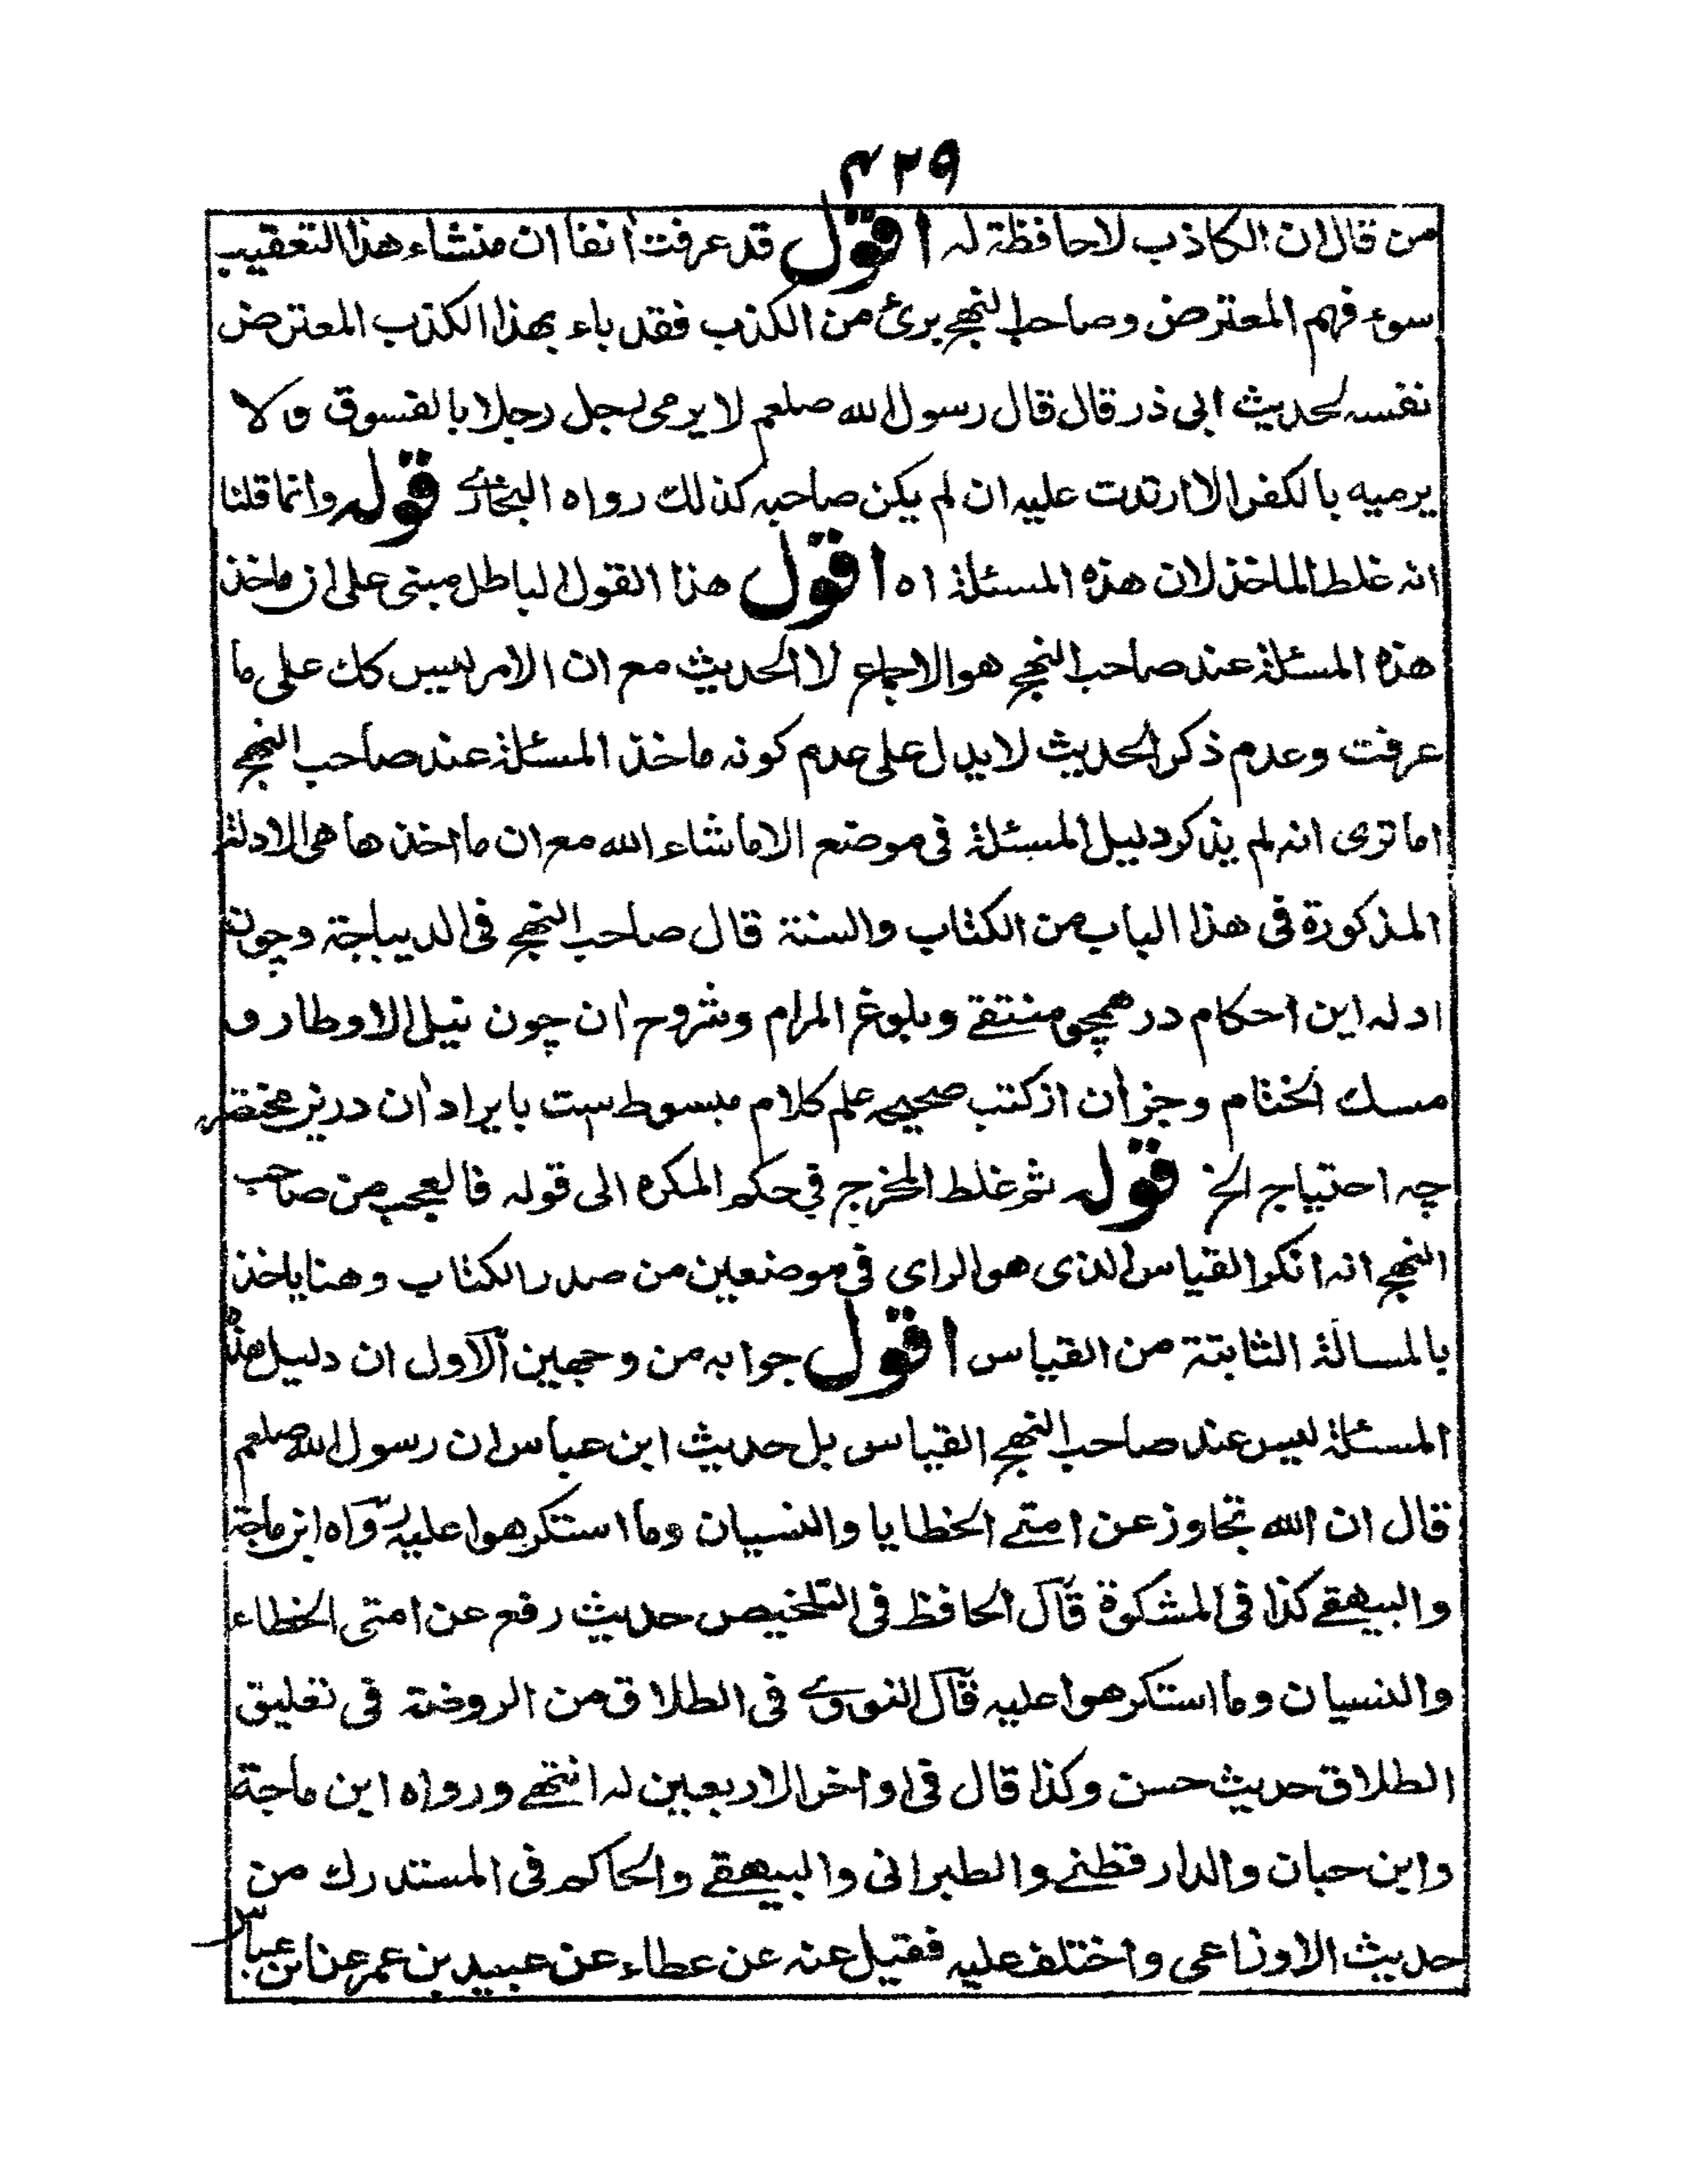 ۴۲۹
من قال ان الكاذب لاحافظة له اقول قد عرفت اٰنفا ان منشاء هذا التعقيب
سوء فهم المعترض وصاحب النهج برئ من الكذب فقد باء بهذا الكذب المعترض
نفسه لحديث ابی ذر قال قال رسول الله صلعم لا يرمی رجل رجلا بالفسوق ولا
يرميه بالكفر الا ارتدت عليه ان لم يكن صاحبه كذلك رواه البخاری قوله وانما قلنا
انه غلط الماخذ لان هذه المسئلة اه اقول هذا القول الباطل مبنی علی ان ماخذ
هذه المسئلة عند صاحب النهج هو الاجماع لا الحديث مع ان الامر ليس كك علی ما
عرفت وعدم ذكر الحديث لا يدل علی عدم كونه ماخذ المسئلة عند صاحب النهج
اما تری انه لم يذكر دليل المسئلة فی موضع الا ماشاء الله مع ان ماخذها هی الادلة
المذكورة فی هذا الباب من الكتاب والسنة قال صاحب النهج فی الديباجة وچون
ادله این احكام در همچو منتقے وبلوغ المرام وشروح اٰن چون نيل الاوطار و
مسك الختام وجز اٰن از كتب صحيحه علم كلام مبسوط ست بايراد اٰن درين مختصر
چه احتياج الخ قوله ثم غلط المخرج فی حكم المكره الی قوله فالعجب من صاحب
النهج انه انكر القياس الذی هو الرای فی موضعين من صدر الكتاب وهنا ياخذ
بالمسالة الثابتة من القياس اقول جوابه من وجهين الاول ان دليل هذه
المسئلة ليس عند صاحب النهج القياس بل حديث ابن عباس ان رسول الله صلعم
قال ان الله تجاوز عن امتے الخطايا والنسيان وما استكرهوا عليه رواه ابن ماجة
والبيهقے كذا فی المشكوة قال الحافظ فی التلخيص حديث رفع عن امتی الخطاء
والنسيان وما استكرهوا عليه قال النووے فی الطلاق من الروضة فی تعليق
الطلاق حديث حسن وكذا قال فی اواخر الاربعين له انتهے ورواه ابن ماجة
وابن حبان والدارقطنے والطبرانی والبيهقے والحاكم فی المستدرك من
حديث الاوزاعی واختلف عليه فقيل عنه عن عطاء عن عبيد بن عمر عن ابن عباس